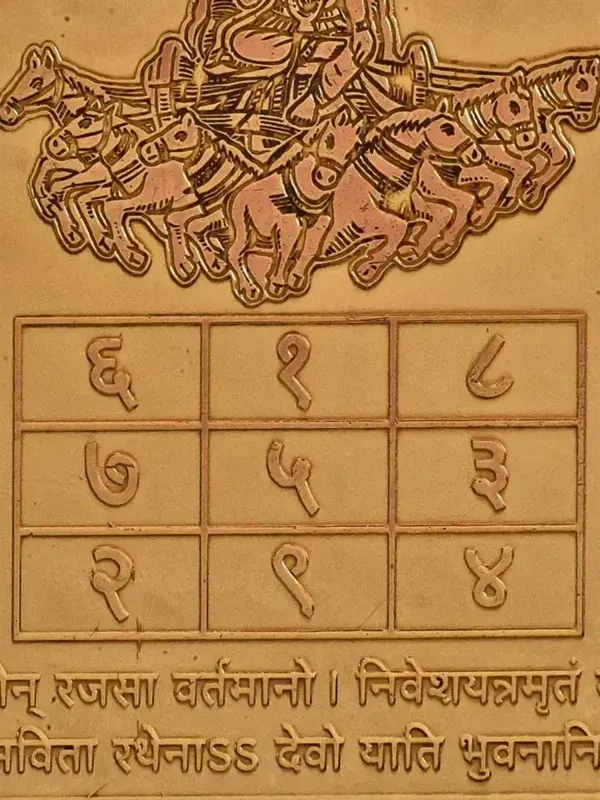 ६ १ ८
७ ५ ३
२ ९ ४
रजसा वर्तमानो । निवेशयन्नमृतं
सविता रथेनाSS देवो याति भुवनानि